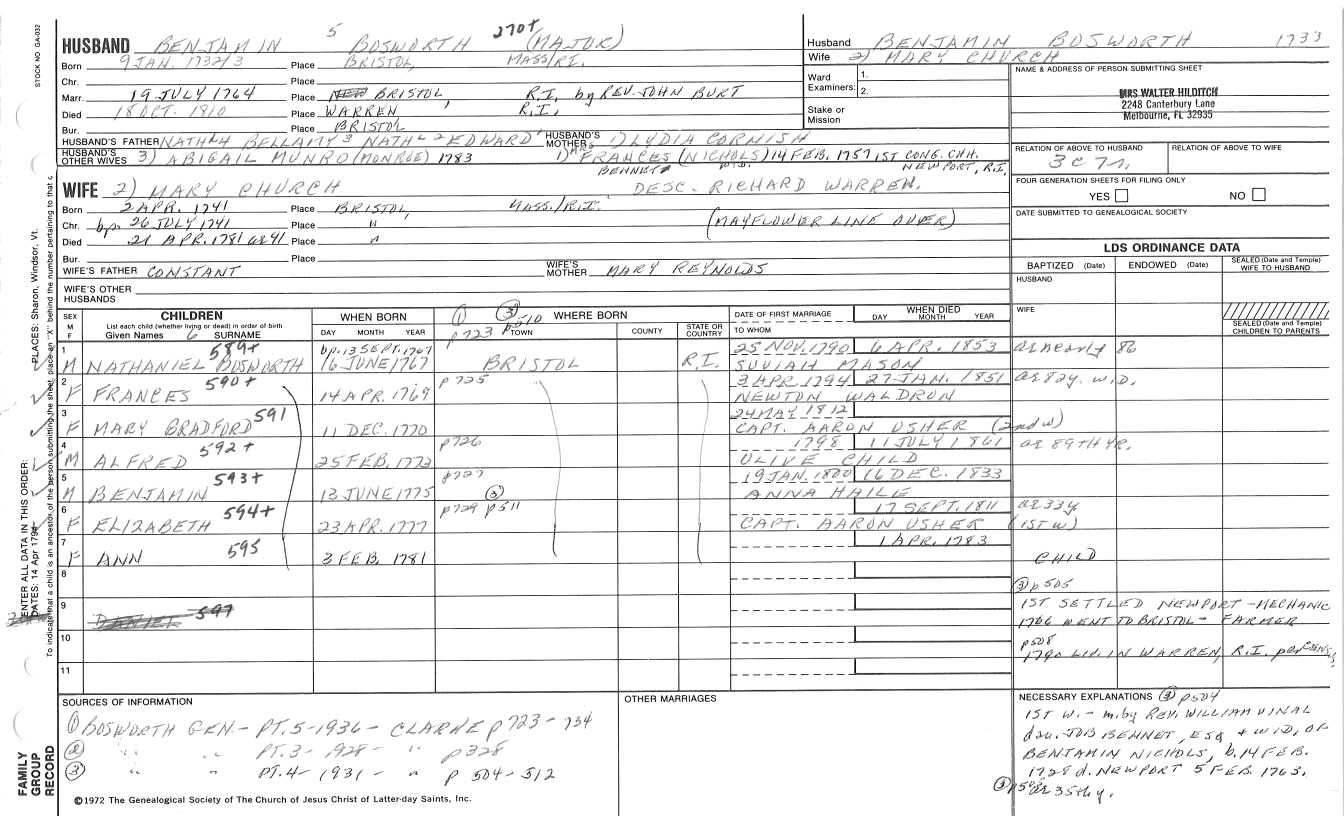 STOCK NO GA-032
HUSBAND BENJAMIN 5 BOSWORTH 270+ (MAJOR)
Born 9 JAN. 1732/3 Place BRISTOL, MASS/R.I.
Chr. Place
Marr. 19 JULY 1764 Place BRISTOL, R.I. by REV. JOHN BURT
Died 18 OCT. 1810 Place WARREN R.I.
Bur. Place BRISTOL
HUSBAND'S FATHER NATH'L 4 BELLAMY 3 NATH'L 2 EDWARD 1 HUSBAND'S MOTHER 1) LYDIA CORNISH
HUSBAND'S OTHER WIVES 3) ABIGAIL MUNRO (MONROE) 1783 1) MRS FRANCES (NICHOLS) 14 FEB. 1757 1ST CONG. CHH.
BENNET W.D. NEWPORT, R.I.
Husband BENJAMIN BOSWORTH 1733
Wife 2) MARY CHURCH
Ward Examiners: 1.
2.
Stake or Mission
NAME & ADDRESS OF PERSON SUBMITTING SHEET
MRS WALTER HILDITCH
2248 Canterbury Lane
Melbourne, FL 32935
RELATION OF ABOVE TO HUSBAND RELATION OF ABOVE TO WIFE
3C 7r.
FOUR GENERATION SHEETS FOR FILING ONLY
YES NO
DATE SUBMITTED TO GENEALOGICAL SOCIETY
WIFE 2) MARY CHURCH DESC. RICHARD WARREN.
Born 2 APR. 1741 Place BRISTOL, MASS./R.I.
Chr. bp. 26 JULY 1741 Place " (MAYFLOWER LINE OVER)
Died 21 APR. 1781 ae 41 Place "
Bur. Place
WIFE'S FATHER CONSTANT WIFE'S MOTHER MARY REYNOLDS
WIFE'S OTHER HUSBANDS
LDS ORDINANCE DATA
BAPTIZED (Date) ENDOWED (Date) SEALED (Date and Temple) WIFE TO HUSBAND
HUSBAND
WIFE
SEALED (Date and Temple) CHILDREN TO PARENTS
SEX M F CHILDREN WHEN BORN WHERE BORN DATE OF FIRST MARRIAGE WHEN DIED
List each child (whether living or dead) in order of birth
Given Names 6 SURNAME DAY MONTH YEAR TOWN COUNTY STATE OR COUNTRY TO WHOM DAY MONTH YEAR
① p723 ③ p510
1 589+ bp. 13 SEPT. 1767 25 NOV. 1790 6 APR. 1853 ae nearly 86
M NATHANIEL BOSWORTH 16 JUNE 1767 BRISTOL R.I. SUVIAH MASON
2 590+ p725 3 APR 1794 27 JAN. 1851 ae 82y. W.D.
F FRANCES 14 APR. 1769 NEWTON WALDRON
3 591 24 MAY 1812
F MARY BRADFORD 11 DEC. 1770 CAPT. AARON USHER (2nd W)
4 592+ p726 1798 11 JULY 1861 ae 89TH YR.
M ALFRED 25 FEB. 1773 OLIVE CHILD
5 593+ p727 19 JAN. 1800 16 DEC. 1833
M BENJAMIN 13 JUNE 1775 ANNA HAILE
6 594+ p729 ③ p511 17 SEPT. 1811 ae 33y
F ELIZABETH 23 APR. 1777 CAPT. AARON USHER (1ST W)
7 595 1 APR. 1783
F ANN 3 FEB. 1781 CHILD
8
③ p505
9 DANIEL 597 1ST SETTLED NEWPORT - MECHANIC
1766 WENT TO BRISTOL - FARMER
10 p508
1790 LIV. IN WARREN, R.I. per CENSUS
11
SOURCES OF INFORMATION
① BOSWORTH GEN - PT. 5 - 1936 - CLARKE p 723 - 734
② " " PT. 3 - 1928 - " p328
③ " " PT. 4 - 1931 - " p 504 - 512
OTHER MARRIAGES
NECESSARY EXPLANATIONS ③ p504
1ST W. - m. by REV. WILLIAM VINAL
dau. JOB BENNET, ESQ + WID. OF
BENJAMIN NICHOLS, b. 14 FEB.
1728 d. NEWPORT 5 FEB. 1763.
ae 35th y.
©1972 The Genealogical Society of The Church of Jesus Christ of Latter-day Saints, Inc.
FAMILY GROUP RECORD
ENTER ALL DATA IN THIS ORDER:
DATES: 14 Apr 1794
PLACES: Sharon, Windsor, Vt.
To indicate that a child is an ancestor of the person submitting the sheet, place an "X" behind the number pertaining to that c